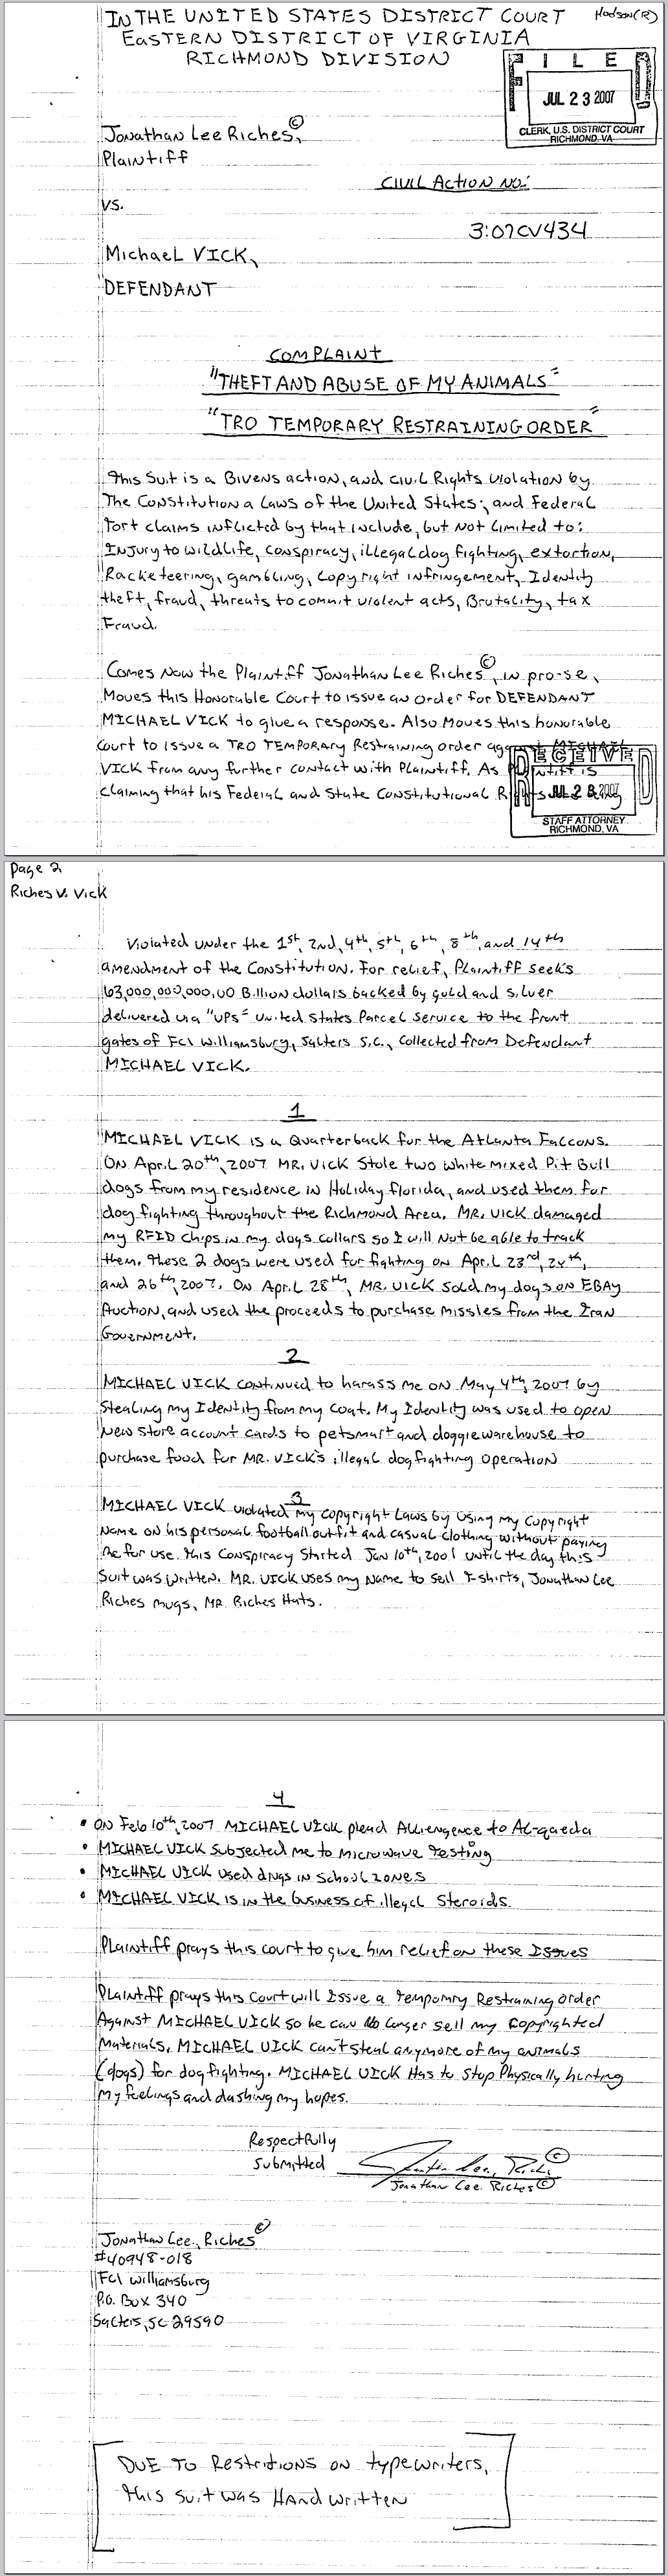 IN THE UNITED STATES DISTRICT COURT Hudson(R)
EASTERN DISTRICT OF VIRGINIA
RICHMOND DIVISION
FILED
JUL 23 2007
CLERK, U.S. DISTRICT COURT
RICHMOND, VA
Jonathan Lee Riches©,
Plaintiff
CIVIL ACTION NO:
vs.
3:07CV434
Michael VICK,
DEFENDANT
COMPLAINT
"THEFT AND ABUSE OF MY ANIMALS"
"TRO TEMPORARY RESTRAINING ORDER"
This Suit is a Bivens action, and civil Rights violation by
The Constitution a Laws of the United States; and Federal
Tort claims inflicted by that include, but not limited to:
Injury to wildlife, conspiracy, illegal dog fighting, extortion,
Racketeering, gambling, copyright infringement, Identity
theft, fraud, threats to commit violent acts, Brutality, tax
Fraud.
Comes Now the Plaintiff Jonathan Lee Riches©, in pro-se,
Moves this Honorable Court to issue an order for DEFENDANT
MICHAEL VICK to give a response. Also Moves this honorable
Court to issue a TRO TEMPORARY Restraining order against MICHAEL
VICK from any further contact with Plaintiff. As Plaintiff is
claiming that his Federal and State Constitutional Rights being
RECEIVED
JUL 2 2007
STAFF ATTORNEY
RICHMOND, VA
Page 2
Riches v. Vick
Violated under the 1st, 2nd, 4th, 5th, 6th, 8th, and 14th
amendment of the Constitution. For relief, Plaintiff seeks
63,000,000,000,00 Billion dollars backed by gold and silver
delivered via "UPS" United States Parcel Service to the front
gates of FCI Williamsburg, Salters S.C., Collected from Defendant
MICHAEL VICK.
1
MICHAEL VICK is a Quarterback for the Atlanta Falcons.
On April 20th, 2007 MR. VICK Stole two white mixed Pit Bull
dogs from my residence in Holiday Florida, and used them for
dog fighting throughout the Richmond Area. MR. VICK damaged
my RFID Chips in my dogs collars so I will Not be able to track
them. These 2 dogs were used for fighting on April 23rd, 24th,
and 26th, 2007. On April 28th, MR. VICK sold my dogs on EBAY
Auction, and used the proceeds to purchase missles from the Iran
Government.
2
MICHAEL VICK continued to harass me on May 4th, 2007 by
Stealing my Identity from my coat. My Identity was used to open
New store account cards to petsmart and doggie warehouse to
purchase food for MR. VICK'S illegal dogfighting operation
3
MICHAEL VICK violated my copyright Laws by Using my Copyright
Name on his personal football outfit and casual clothing without paying
me for use. This Conspiracy Started Jan 10th, 2001 until the day this
Suit was written. MR. VICK uses my Name to sell T-shirts, Jonathan Lee
Riches mugs, MR. Riches Hats.
4
• ON Feb 10th, 2007 MICHAEL VICK plead Alliengence to Al-qaeda
• MICHAEL VICK subjected me to Microwave Testing
• MICHAEL VICK used drugs in School zones
• MICHAEL VICK is in the business of illegal Steroids.
Plaintiff prays this court to give him relief on these Issues
Plaintiff prays this Court will Issue a Temporary Restraining Order
Against MICHAEL VICK so he can No longer sell my Copyrighted
Materials, MICHAEL VICK can't steal anymore of my animals
(dogs) for dogfighting. MICHAEL VICK Has to Stop Physically hurting
My feelings and dashing my hopes.
Respectfully
Submitted Jonathan Lee, Riches©
Jonathan Lee. Riches©
Jonathan Lee, Riches©
#40948-018
FCI Williamsburg
P.O. Box 340
Salters, SC 29590
DUE TO Restritions on typewriters,
this suit was HAND written